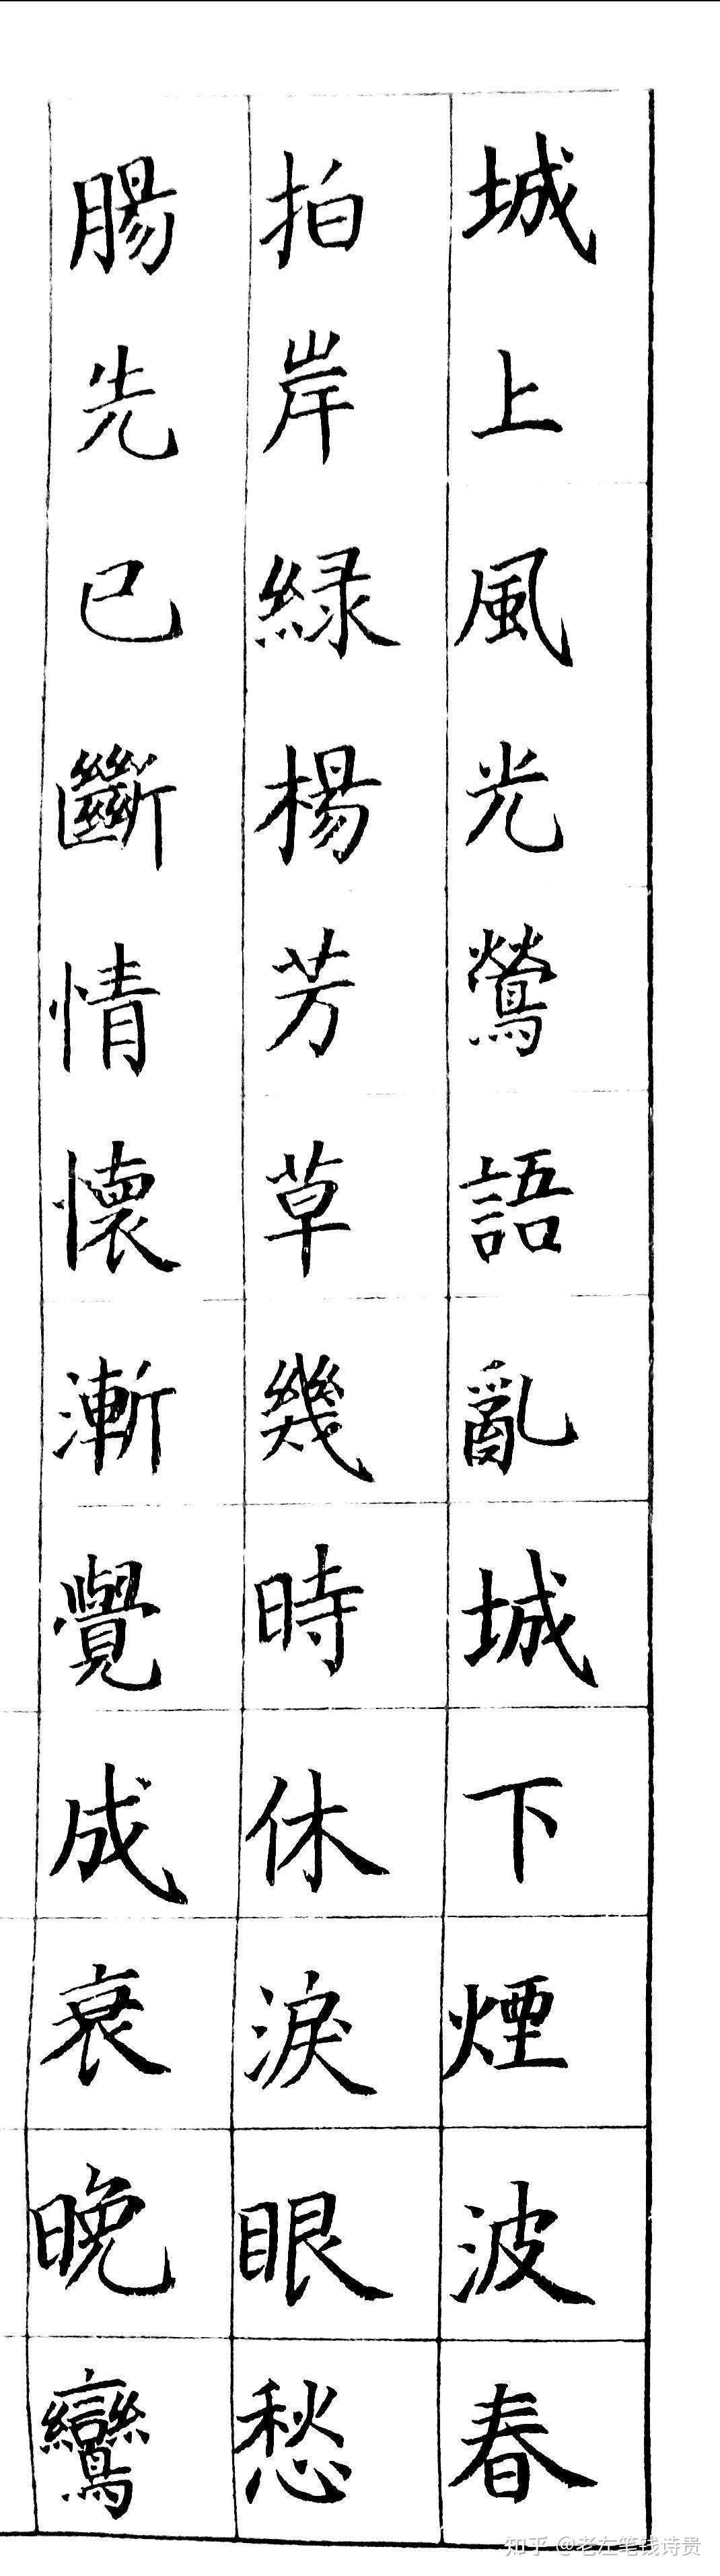 城上風光鶯語亂城下煙波春
拍岸緑楊芳草幾時休淚眼愁
腸先已斷情懷漸覺成衰晚鸞
知乎 @老左笔钱诗贵